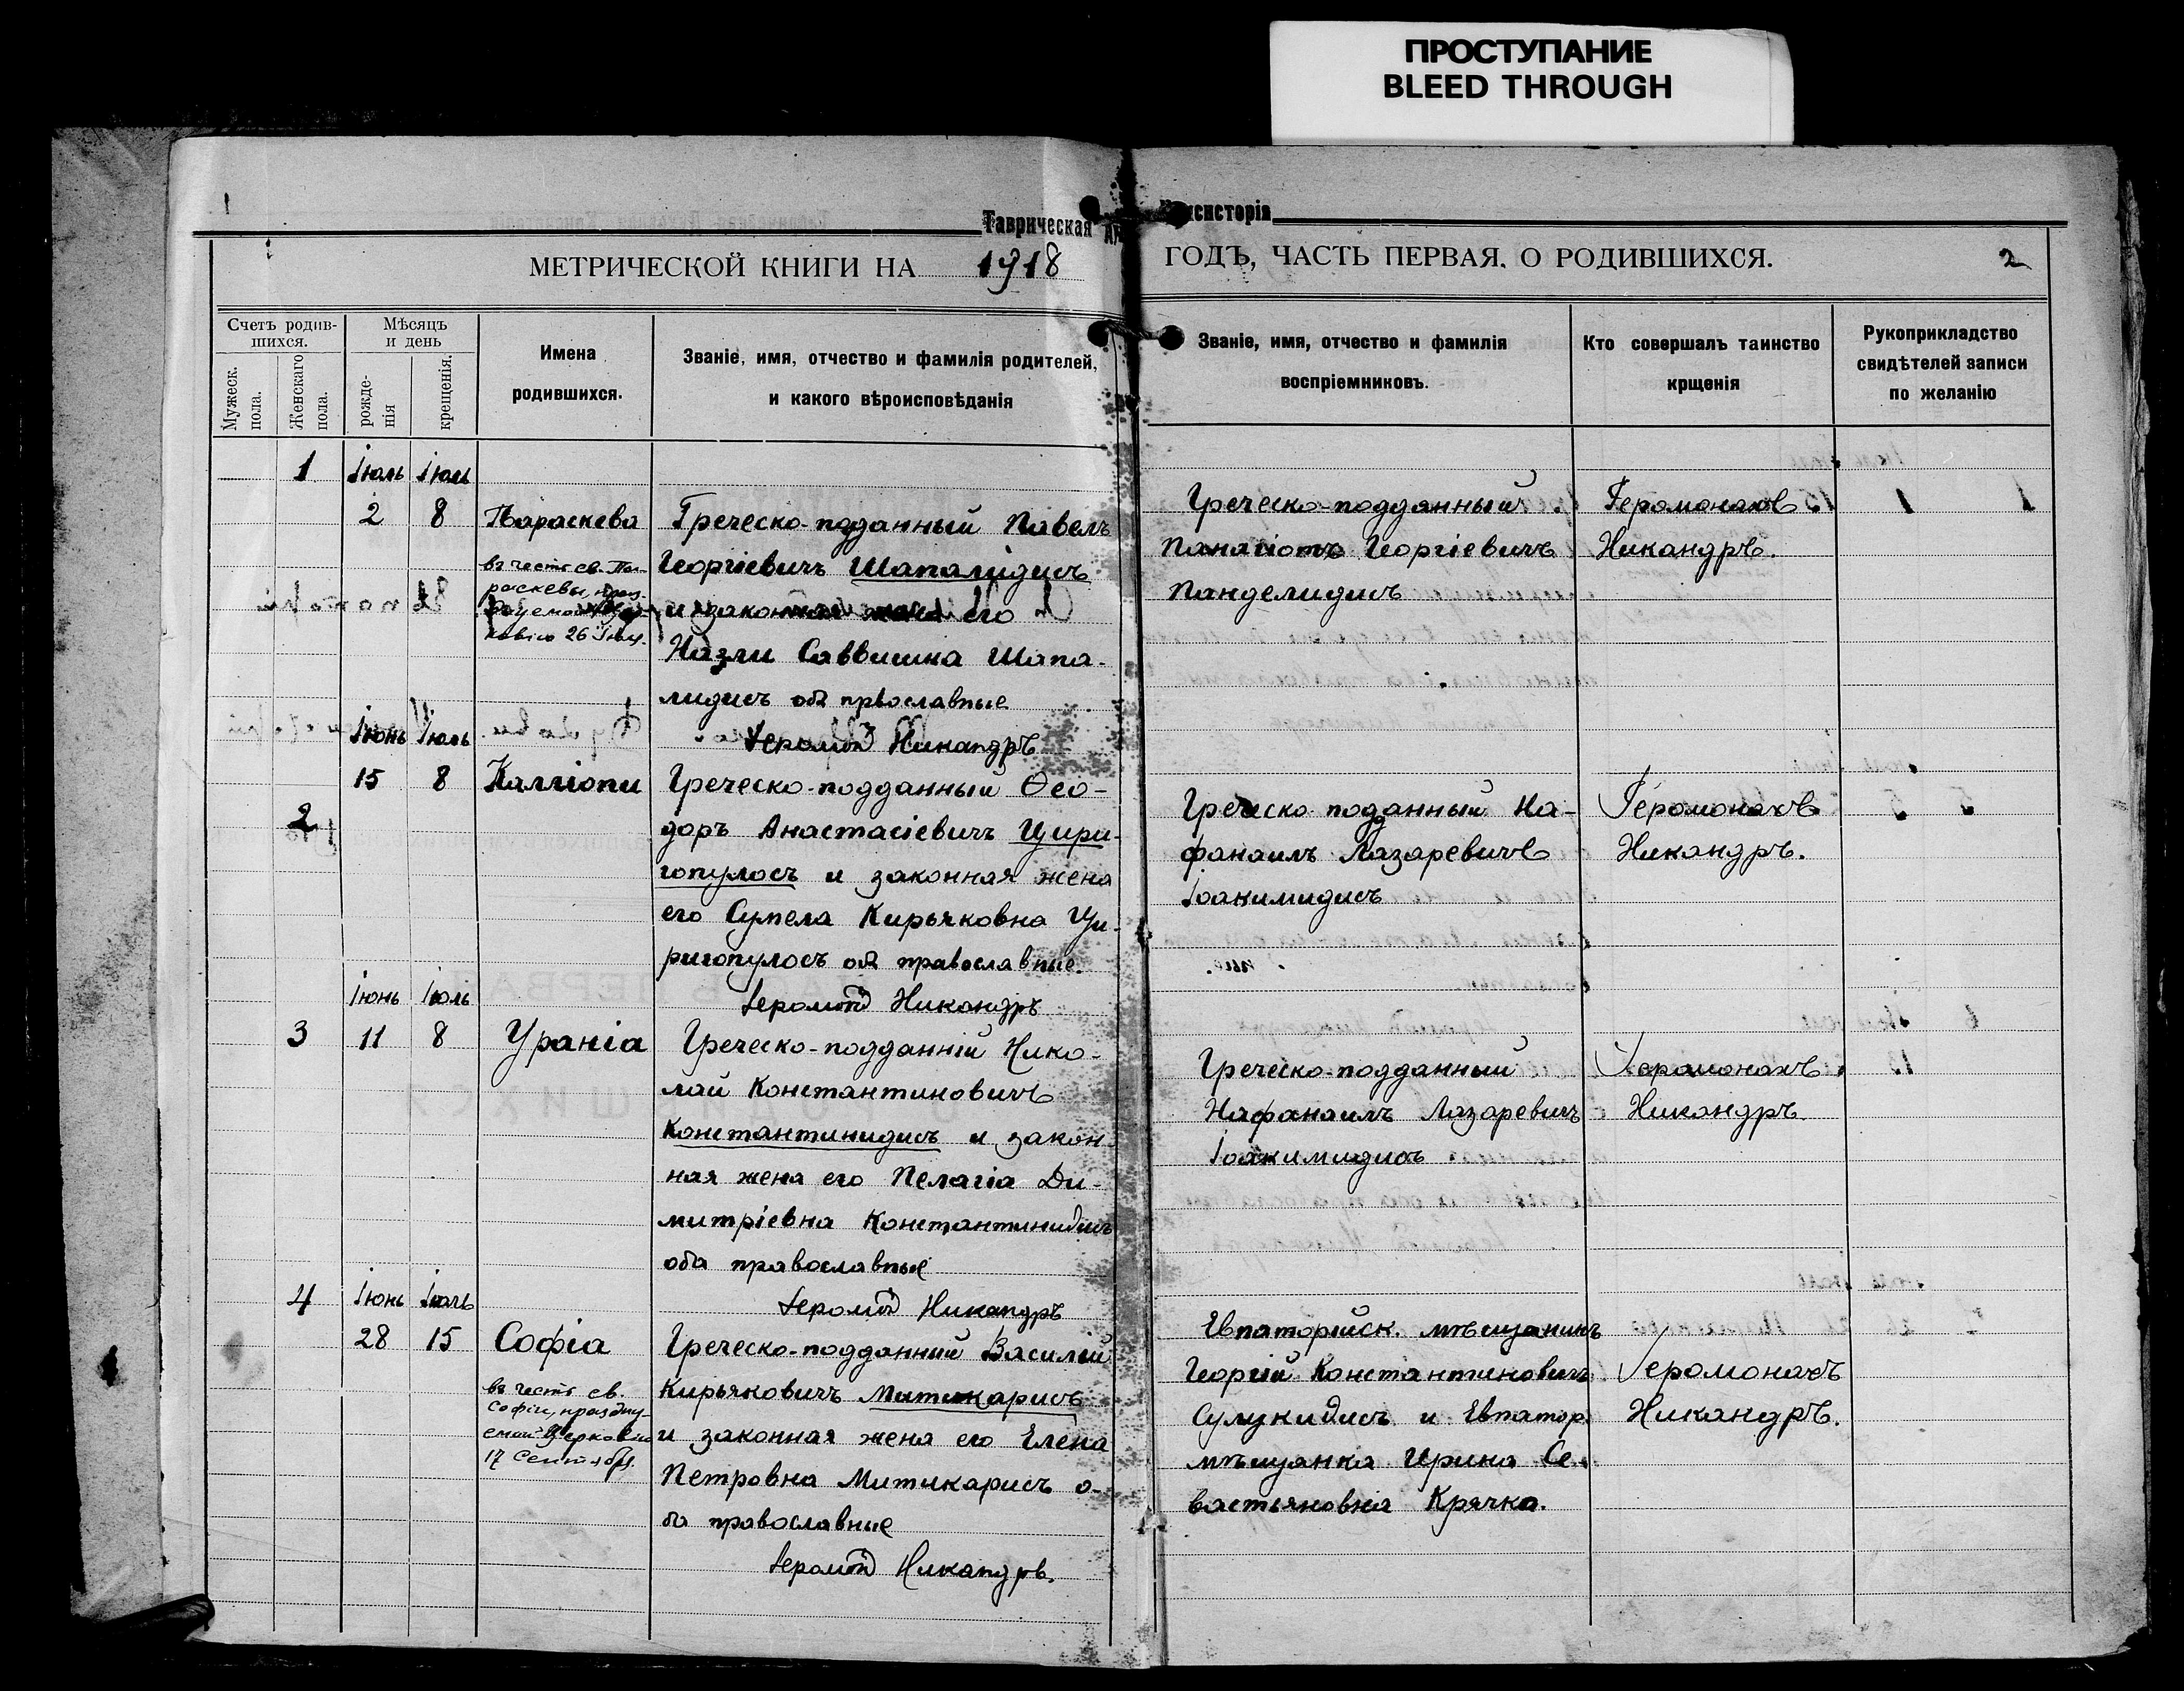 ПРОСТУПАНИЕ
BLEED THROUGH
Таврическая
Консисторія
МЕТРИЧЕСКОЙ КНИГИ НА 1918
ГОДЪ, ЧАСТЬ ПЕРВАЯ. О РОДИВШИХСЯ.
2
Счетъ родив-
шихся.
Мужеск.
пола.
Женскаго
пола.
Мѣсяцъ
и день
рожде-
нія
крещенія.
Имена
родившихся.
Званіе, имя, отчество и фамилія родителей,
и какого вѣроисповѣданія
Званіе, имя, отчество и фамилія
воспріемниковъ.
Кто совершалъ таинство
крщенія
Рукоприкладство
свидѣтелей записи
по желанію
1
Іюль Іюль
2 8
Параскева
въ честь св. Па-
раскевы, праз-
26 Іюл.
Греческо-подданный Павелъ
Георгіевичъ Шапалидисъ
и законная жена его
Назли Саввишна Шапа-
лидисъ оба првославные
Іеромон Никандръ
Греческо-подданный
Панагіотъ Георгіевичъ
Панделидисъ
Іеромонахъ
Никандръ.
2
Іюнь Іюль
15 8
Каллiопи
Греческо-подданный Ѳео-
доръ Анастасіевичъ Цири-
гопулосъ и законная жена
его Сумела Кирьяковна Ци-
ригопулосъ оба православные.
Іеромон Никандръ
Греческо поданный На-
фанаилъ Лазаревичъ
Іоакимидисъ
Іеромонахъ
Никандръ.
3
Іюнь Іюль
11 8
Уранiа
Греческо-подданнiй Нико-
лай Константиновичъ
Константинидисъ и закон-
ная жена его Пелагіа Ди-
митріевна Константинидисъ
оба православные
Іеромон Никандръ
Греческо-подданный
Нафанаилъ Лазаревичъ
Іоакимидисъ
Іеромонахъ
Никандръ.
4
Іюнь Іюль
28 15
Софіа
въ честь св.
Софіи, праздну-
емой Церковію
17 Сентября.
Греческо-подданний Василій
Кирьяковичъ Митикарисъ
и законная жена его Елена
Петровна Митикарисъ о-
ба православные
Іеромон Никандръ.
Евпаторійск. мѣщанинъ
Георгій Константиновичъ
Сулукидисъ и Евпатор.
мѣщанка Ирина Се-
вастьяновна Крячка.
Іеромонахъ
Никандръ.